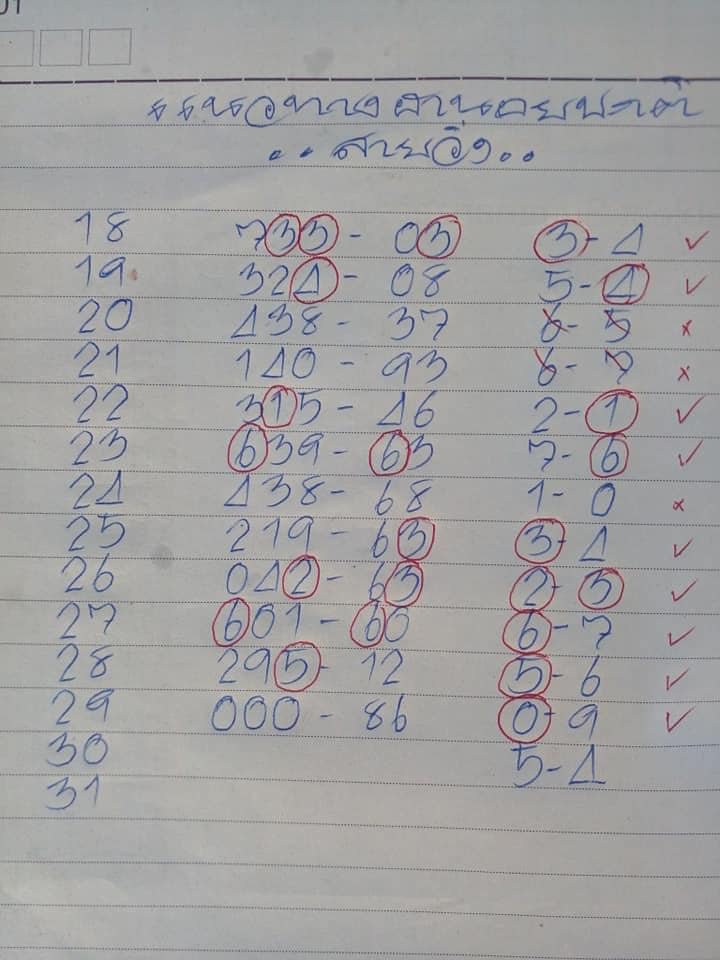 01
แนวทางฮานอยปกติ
..สายวิ่ง..
18 733 - 03 3-4 ✓
19 324 - 08 5-4 ✓
20 438 - 37 6-5 x
21 140 - 93 6-7 x
22 315 - 46 2-1 ✓
23 639 - 63 7-6 ✓
24 438 - 68 1-0 x
25 219 - 63 3-4 ✓
26 042 - 63 2-3 ✓
27 601 - 60 6-7 ✓
28 295 - 12 5-6 ✓
29 000 - 86 0-9 ✓
30 5-4
31